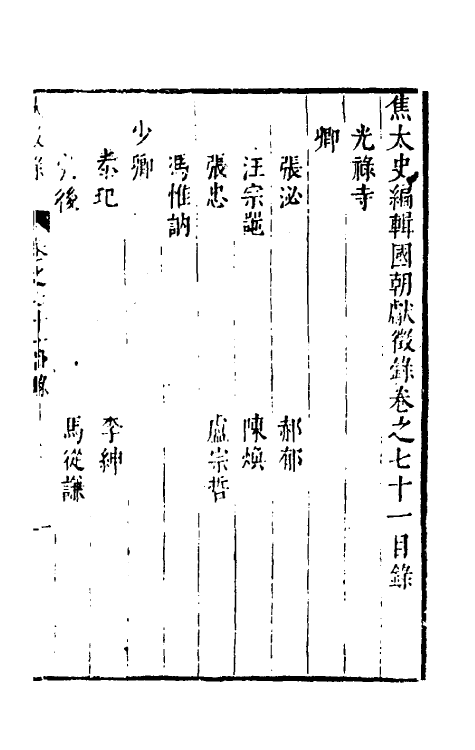 焦太史編輯國朝獻徵錄卷之七十一目錄
光祿寺
卿
張泌 郝郁
汪宗 陳煥
張忠 盧宗哲
馮惟訥
少卿
李紳
後 馬從謙
卷之七十一目錄 一